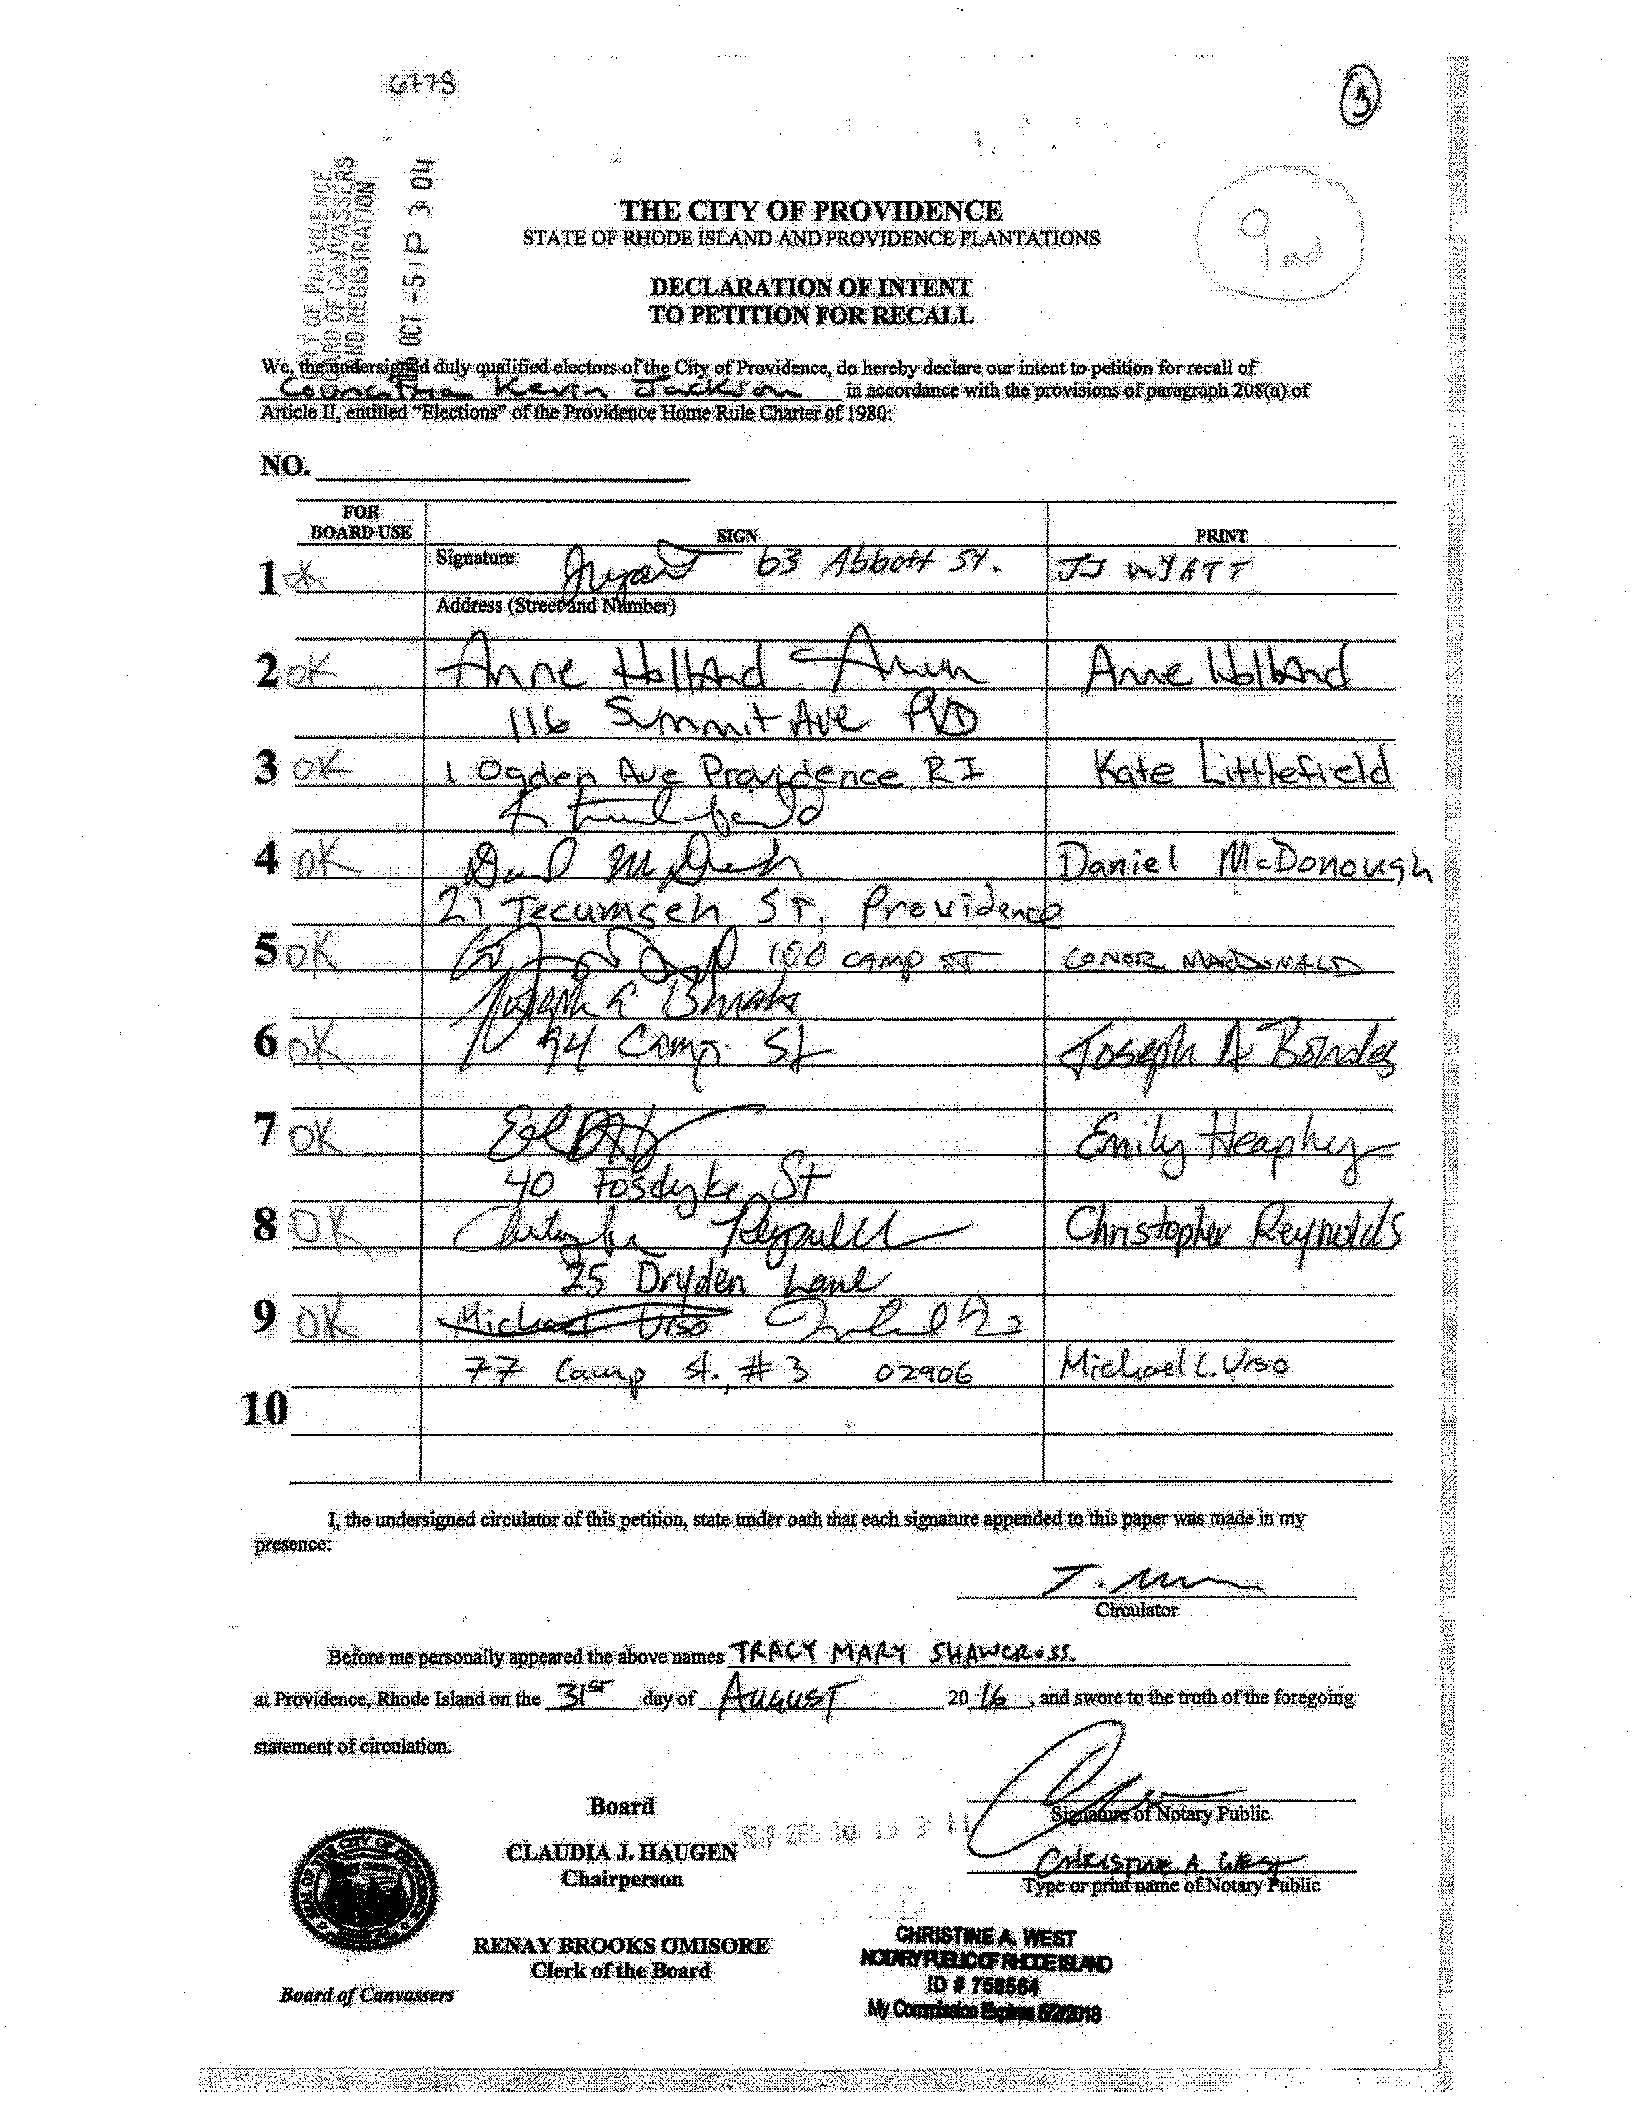 6778
3
THE CITY OF PROVIDENCE
STATE OF RHODE ISLAND AND PROVIDENCE PLANTATIONS
9
DECLARATION OF INTENT
TO PETITION FOR RECALL
OCT -5 P 3 04
We, the undersigned duly qualified electors of the City of Providence, do hereby declare our intent to petition for recall of
Councilman Kevin Jackson in accordance with the provisions of paragraph 208(a) of
Article II, entitled "Elections" of the Providence Home Rule Charter of 1980:
NO.
FOR BOARD USE SIGN PRINT
1 Signature 63 Abbott St. JJ WYATT
Address (Street and Number)
2 OK Anne Holland Anne Holland
116 Summit Ave PVD
3 OK 1 Ogden Ave Providence RI Kate Littlefield
4 OK Daniel McDonough
21 Tecumseh ST, Providence
5 OK 100 CAMP ST CONOR MACDONALD
6 OK 94 Camp St Joseph A
7 OK Emily Heaphey
40 Fosdyke St
8 OK Christopher Reynolds
25 Dryden Lane
9 OK Michael Urso
77 Camp St. #3 02906 Michael C. Urso
10
I, the undersigned circulator of this petition, state under oath that each signature appended to this paper was made in my
presence:
Circulator
Before me personally appeared the above names TRACY MARY SHAWCROSS.
at Providence, Rhode Island on the 31ST day of AUGUST 2016, and swore to the truth of the foregoing
statement of circulation.
Board
Signature of Notary Public
CLAUDIA J. HAUGEN
Chairperson
CHRISTINE A. WEST
Type or print name of Notary Public
RENAY BROOKS OMISORE
Clerk of the Board
Board of Canvassers
CHRISTINE A. WEST
NOTARY PUBLIC OF RHODE ISLAND
ID # 758564
My Commission Expires